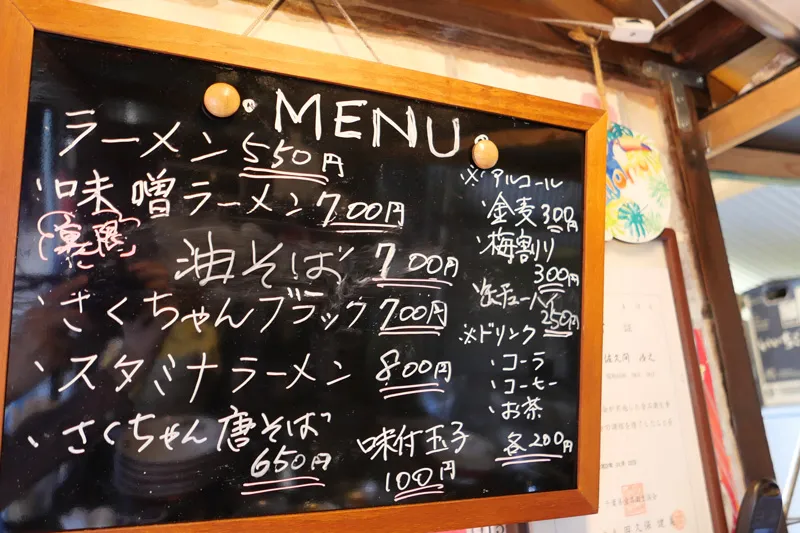 MENU
ラーメン 550円
、味噌ラーメン 700円
油そば 700円
、さくちゃんブラック 700円
、スタミナラーメン 800円
、さくちゃん唐そば
650円
味付玉子
100円
※アルコール
、金麦 300円
、梅割り
300円
、缶チューハイ
250円
※ドリンク
、コーラ
、コーヒー
、お茶
各200円